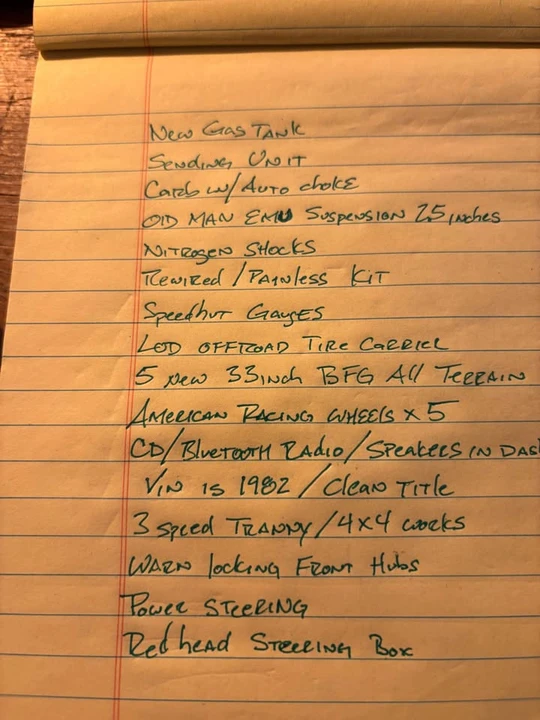 New Gas Tank
Sending Unit
Carb w/Auto choke
Old Man Emu Suspension 2.5 inches
Nitrogen Shocks
Rewired/Painless Kit
Speedhut Gauges
LOD Offroad Tire Carrier
5 New 33inch BFG All Terrain
American Racing Wheels x 5
CD/Bluetooth Radio/Speakers in Das
Vin is 1982/Clean Title
3 speed Tranny/4x4 works
Warn locking Front Hubs
Power Steering
Redhead Steering Box